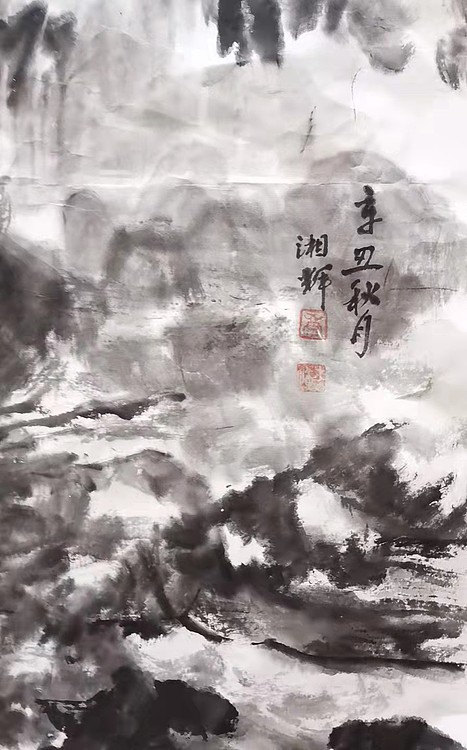 辛丑秋月
湘辉